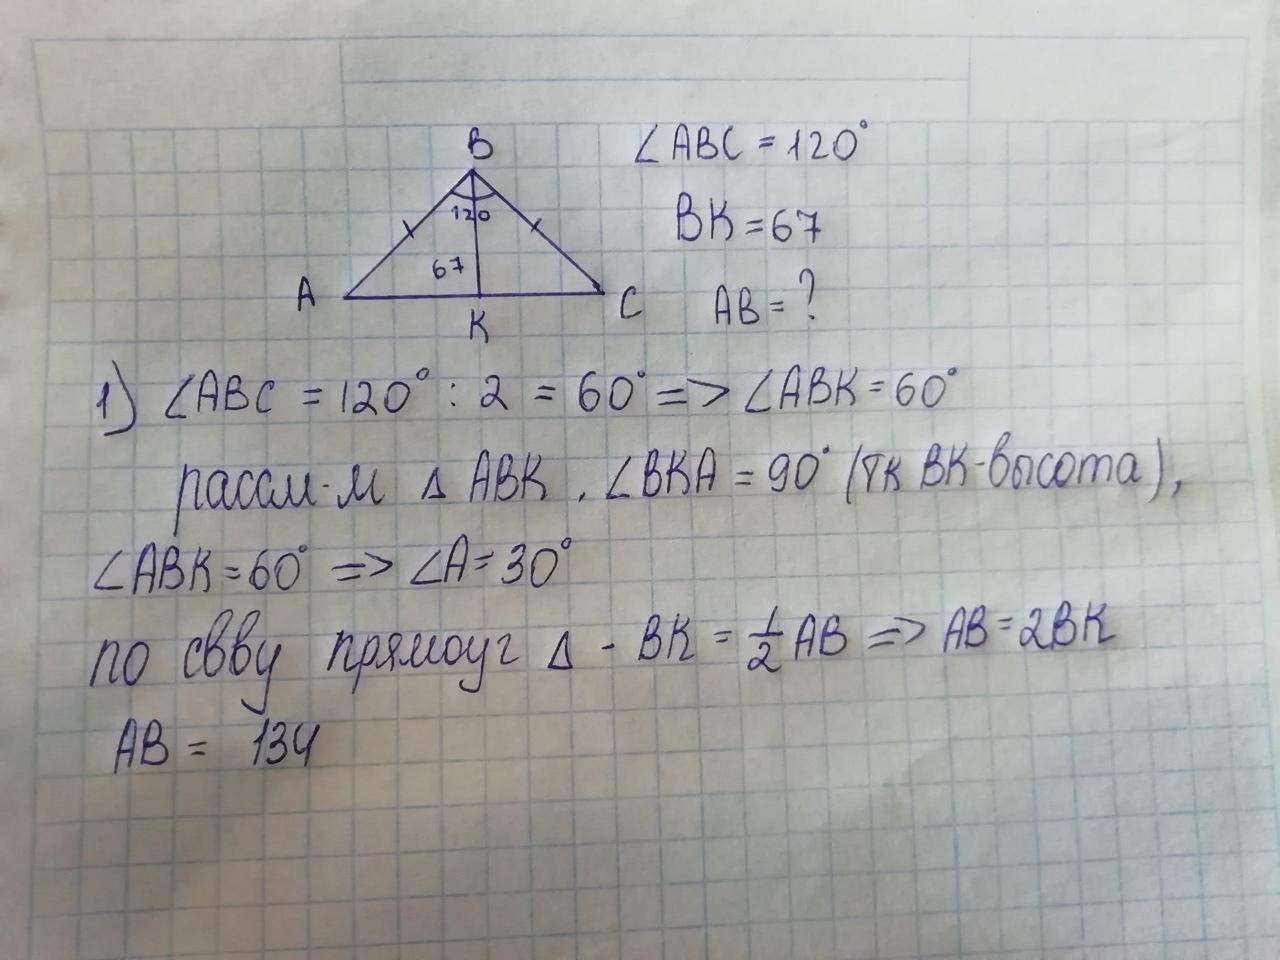 B
∠ABC = 120°
120
BK = 67
67
A
C
AB = ?
K
1) ∠ABC = 120° : 2 = 60° => ∠ABK = 60°
рассм-м △ ABK, ∠BKA = 90° (тк BK-высота),
∠ABK = 60° => ∠A = 30°
по свву прямоуг △ - BK = 1/2 AB => AB = 2BK
AB = 134